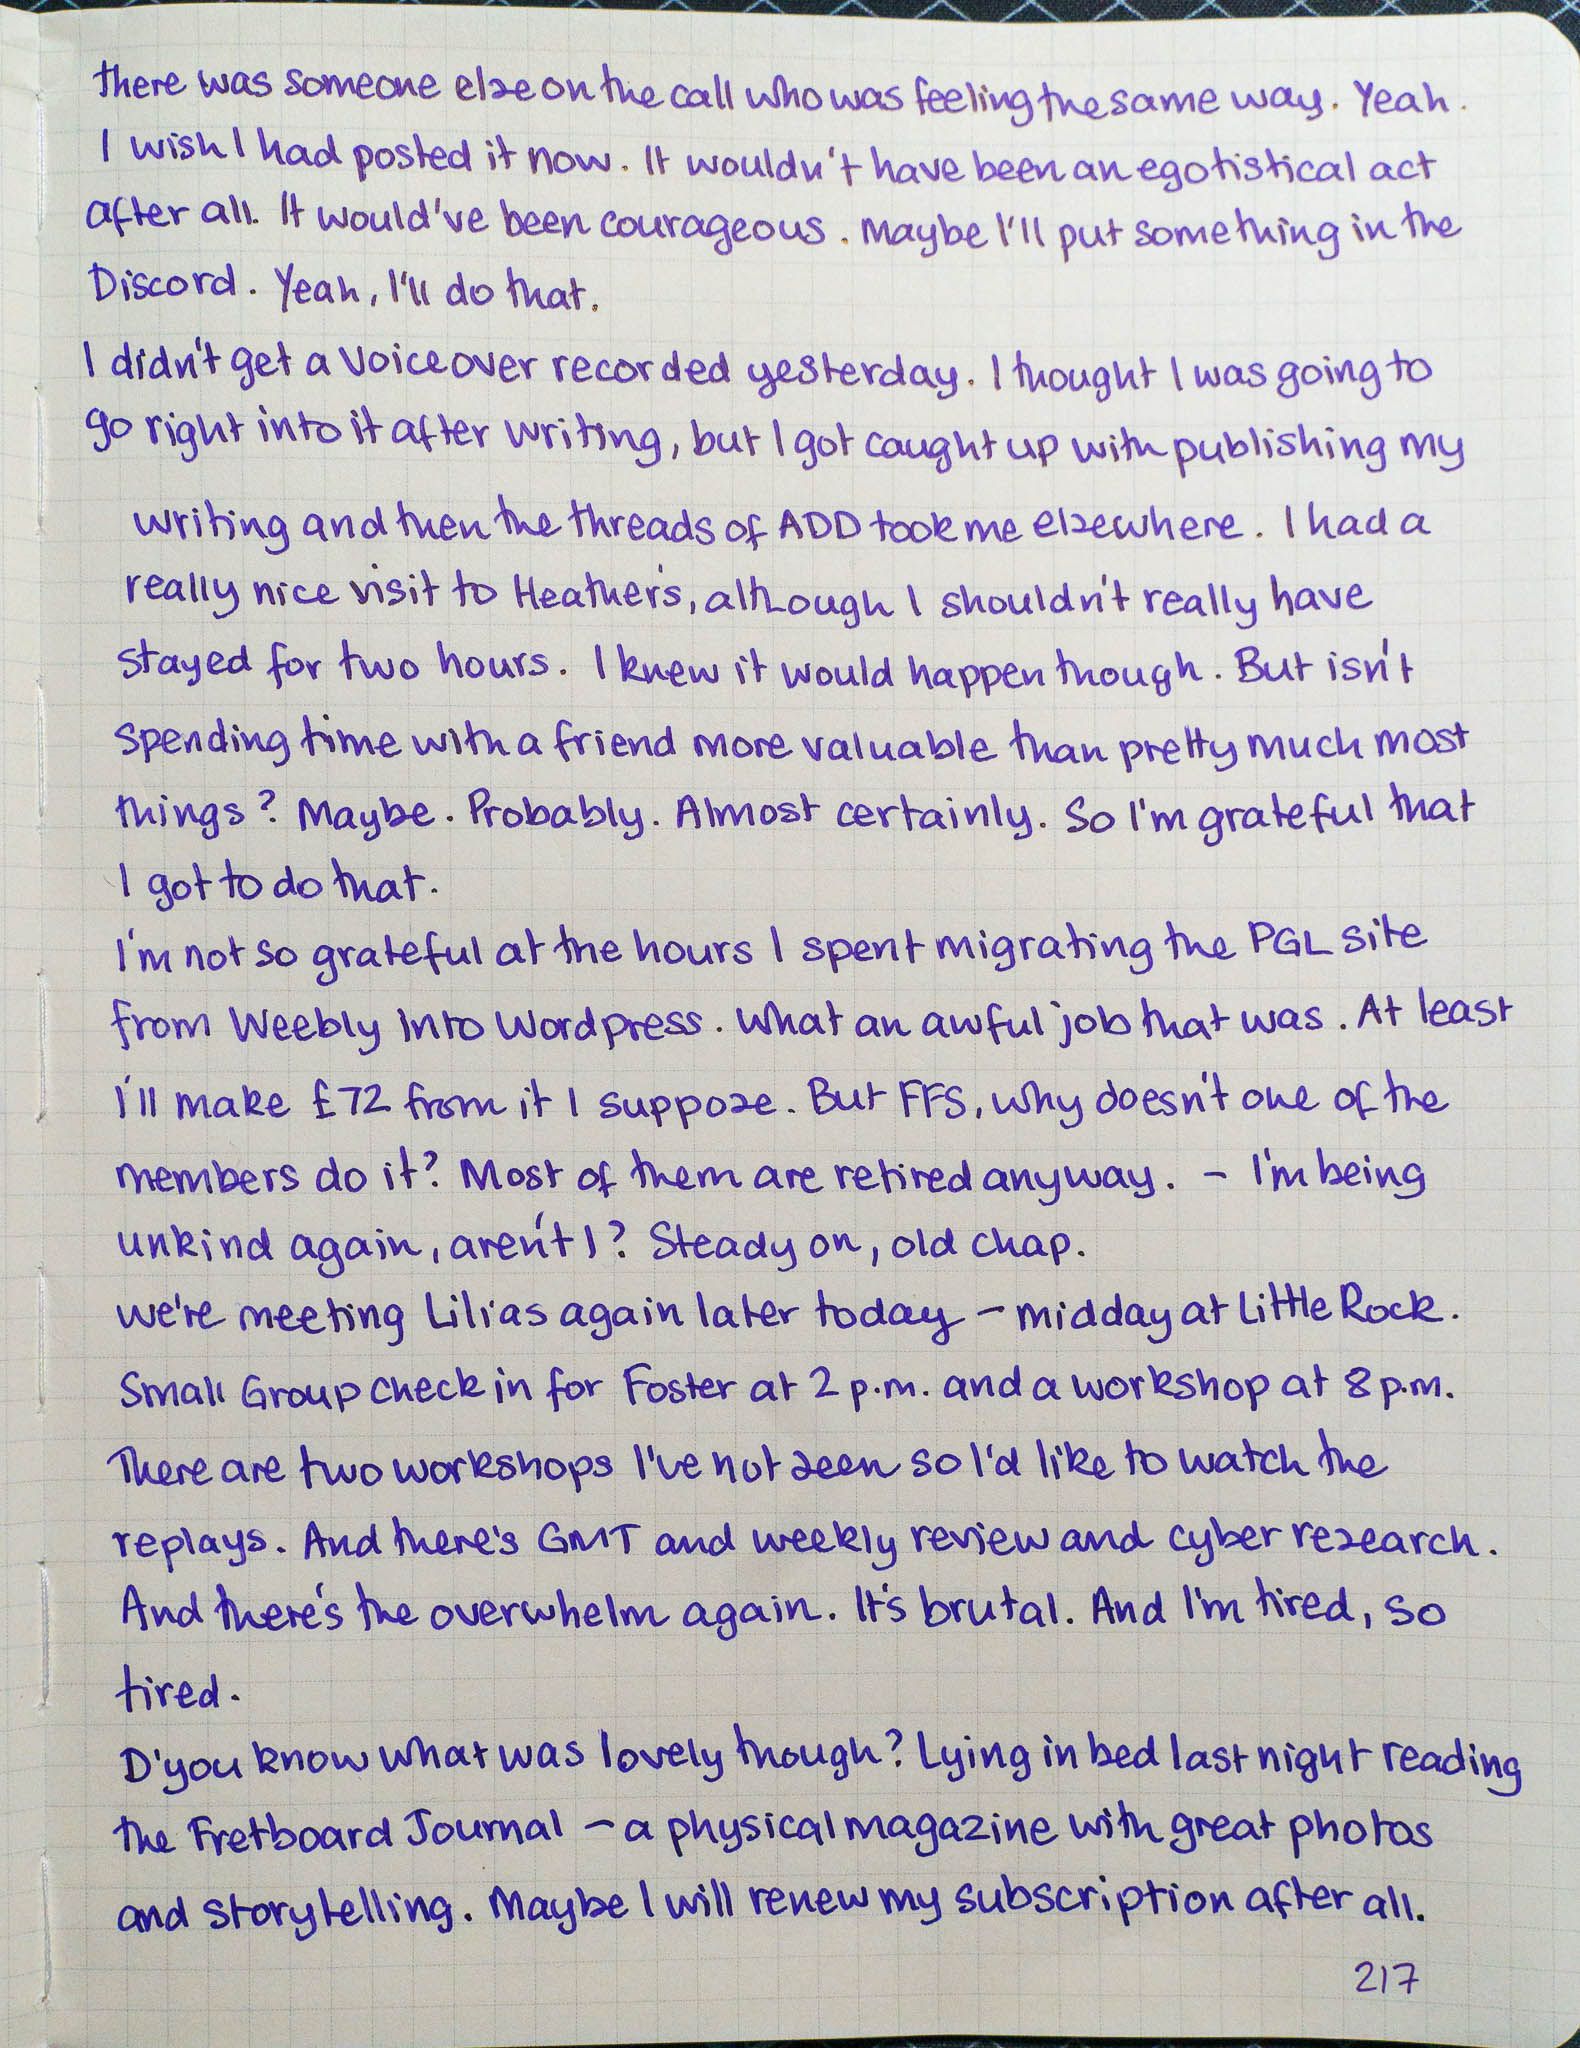 there was someone else on the call who was feeling the same way. Yeah.
I wish I had posted it now. It wouldn't have been an egotistical act
after all. It would've been courageous. Maybe I'll put something in the
Discord. Yeah, I'll do that.
I didn't get a voiceover recorded yesterday. I thought I was going to
go right into it after writing, but I got caught up with publishing my
writing and then the threads of ADD took me elsewhere. I had a
really nice visit to Heather's, although I shouldn't really have
stayed for two hours. I knew it would happen though. But isn't
spending time with a friend more valuable than pretty much most
things? Maybe. Probably. Almost certainly. So I'm grateful that
I got to do that.
I'm not so grateful at the hours I spent migrating the PGL site
from Weebly into Wordpress. What an awful job that was. At least
I'll make £72 from it I suppose. But FFS, why doesn't one of the
members do it? Most of them are retired anyway. – I'm being
unkind again, aren't I? Steady on, old chap.
We're meeting Lilias again later today – midday at Little Rock.
Small Group check in for Foster at 2 p.m. and a workshop at 8 p.m.
There are two workshops I've not seen so I'd like to watch the
replays. And there's GMT and weekly review and cyber research.
And there's the overwhelm again. It's brutal. And I'm tired, so
tired.
D'you know what was lovely though? Lying in bed last night reading
the Fretboard Journal – a physical magazine with great photos
and storytelling. Maybe I will renew my subscription after all.
217